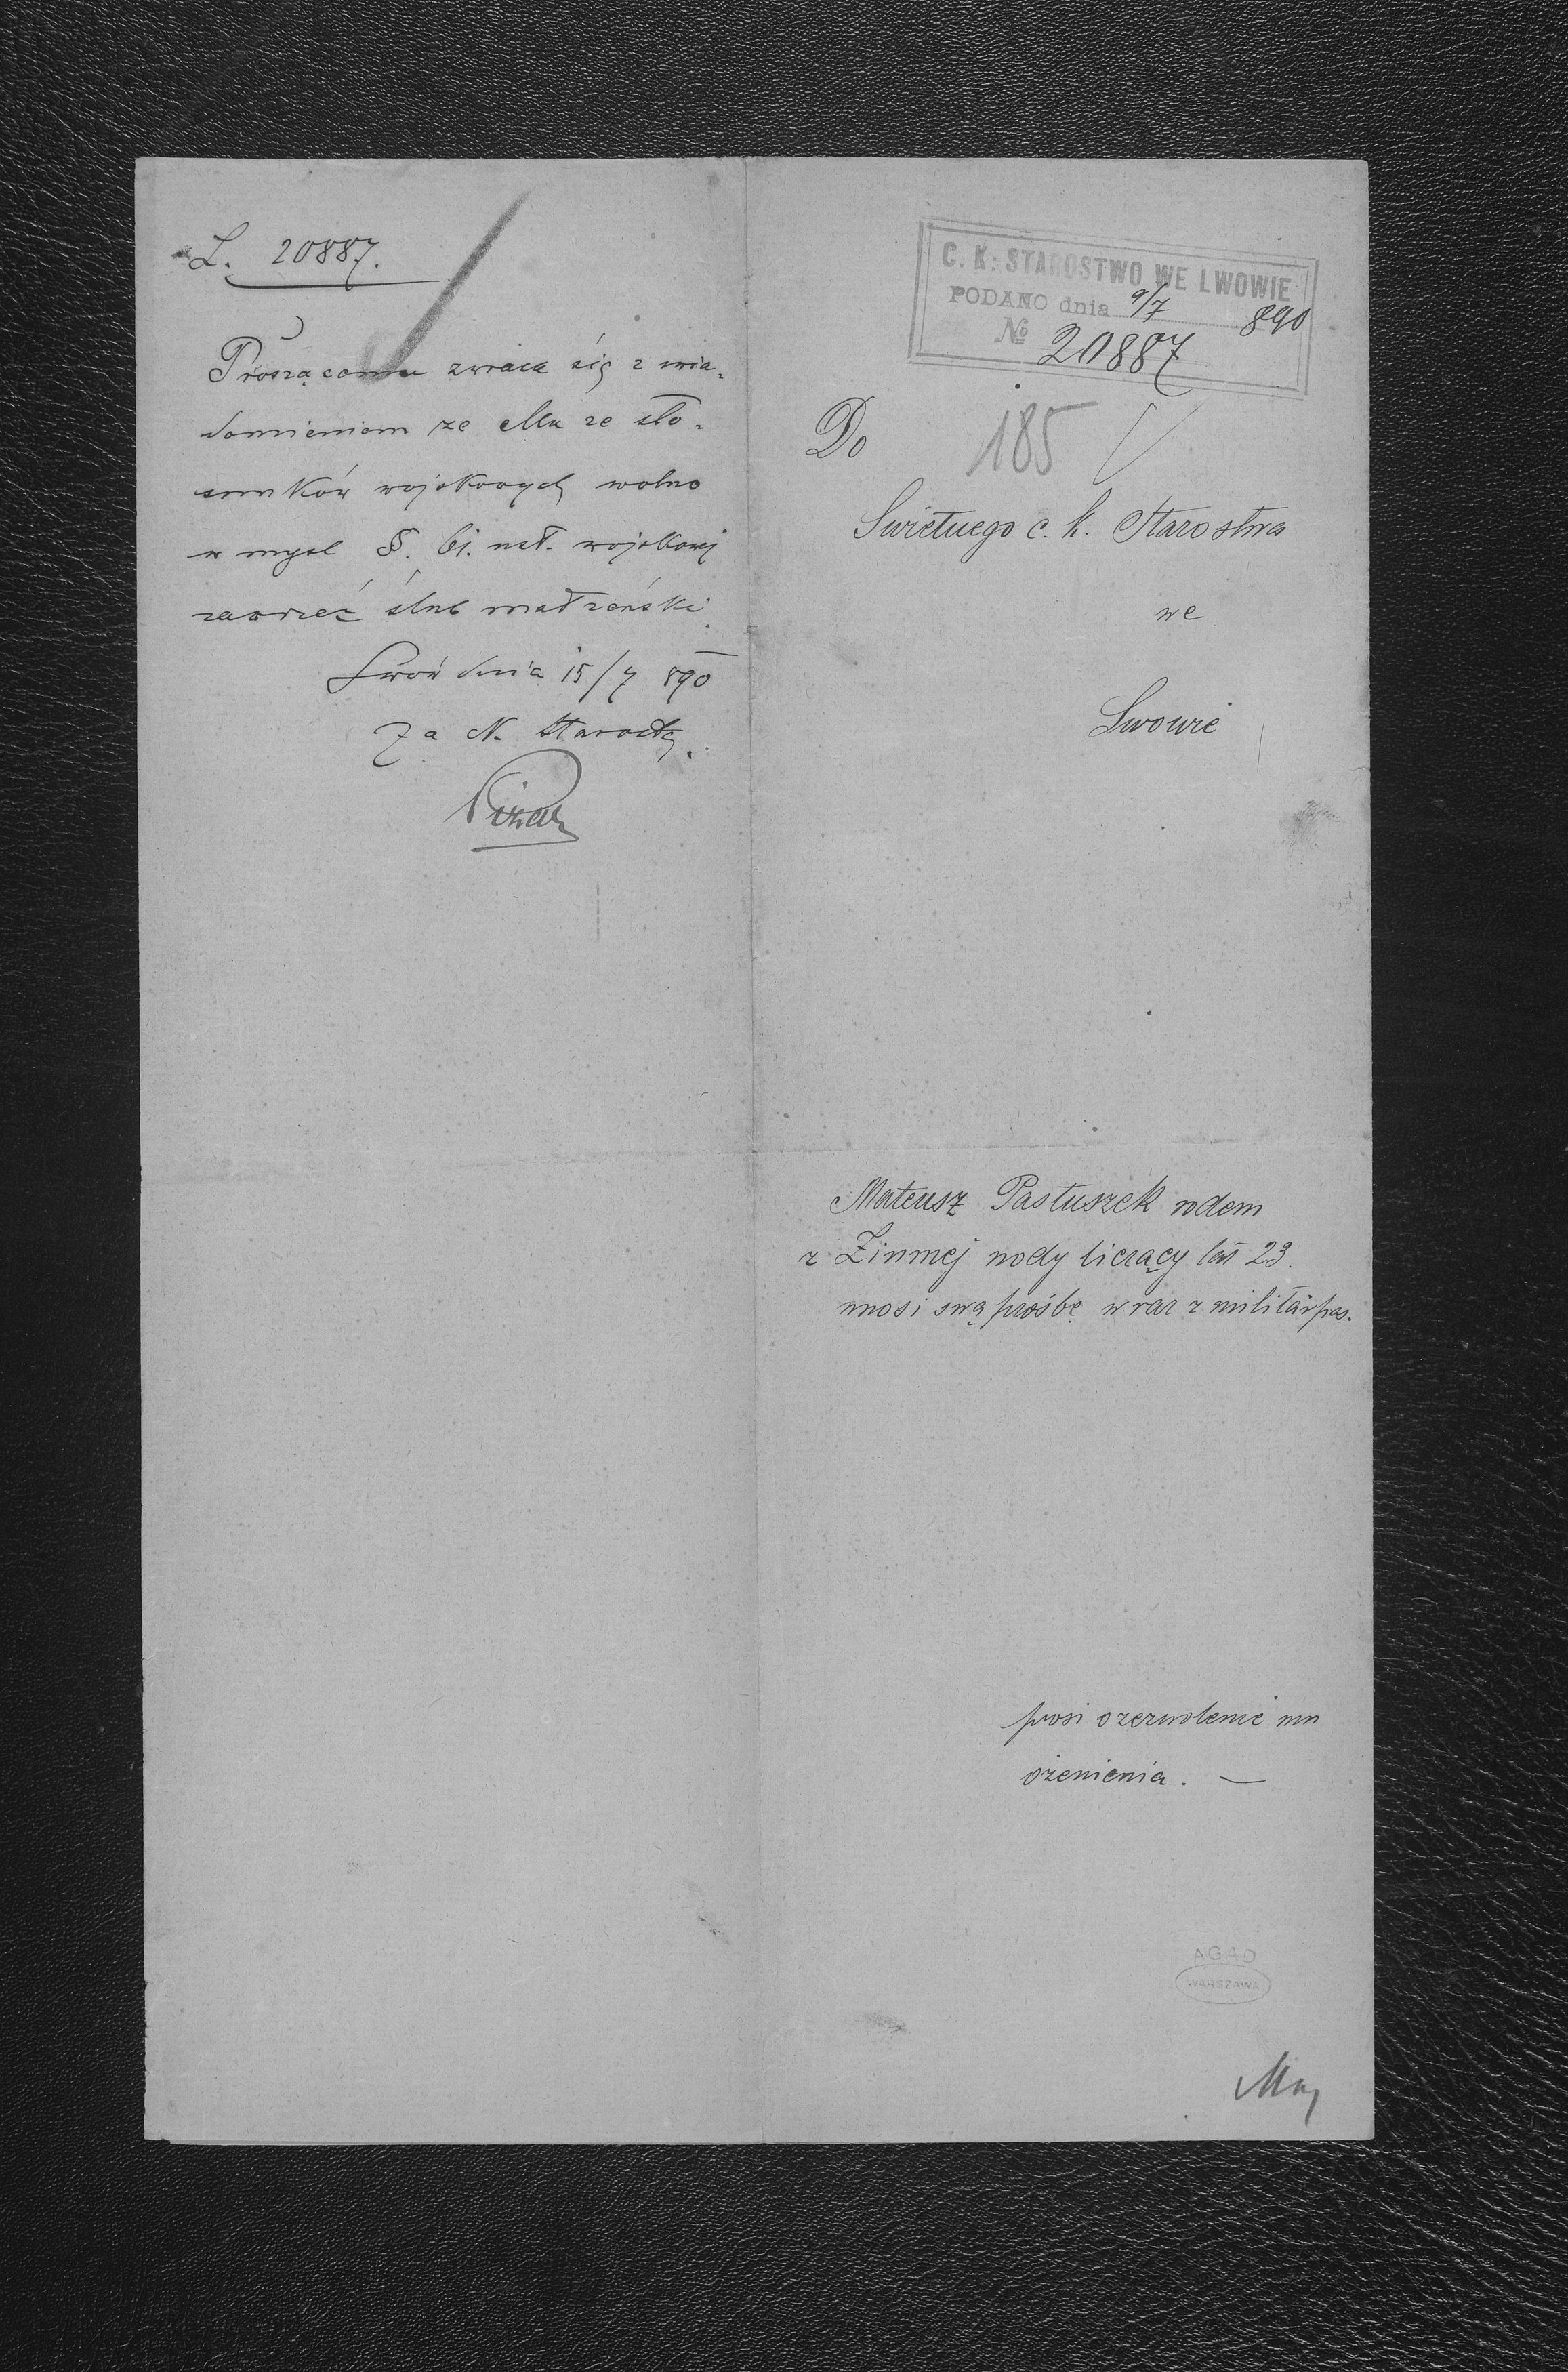 L. 20887.
Proszącemu zwraca się z wia-
domieniem że Mu ze sto-
sunków wojskowych wolno
w mysl §. 61. ust. wojskowej
zawrzeć ślub małżeński
Lwów dnia 15/7 890
Za N. Starostę.
C. K. STAROSTWO WE LWOWIE
PODANO dnia 9/7 890
№ 20887
185
Do
Swietnego c. k. Starostwa
we
Lwowie
Mateusz Pastuszek rodem
z Zimnej wody liczący lat 23.
wnosi swą prośbę wraz z militärpas.
prosi ozezwolenie mu
ożenienia. —
AGAD
WARSZAWA